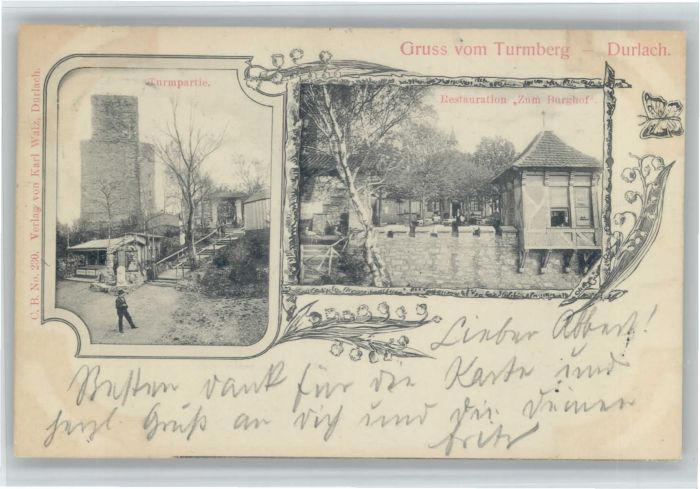 Gruss vom Turmberg – Durlach.
Turmpartie.
Restauration „Zum Burghof“.
C. B. No. 230. Verlag von Karl Walz, Durlach.
Lieber Albert!
Besten Dank für die Karte und
herzl Gruß an dich und die deinen
Fritz